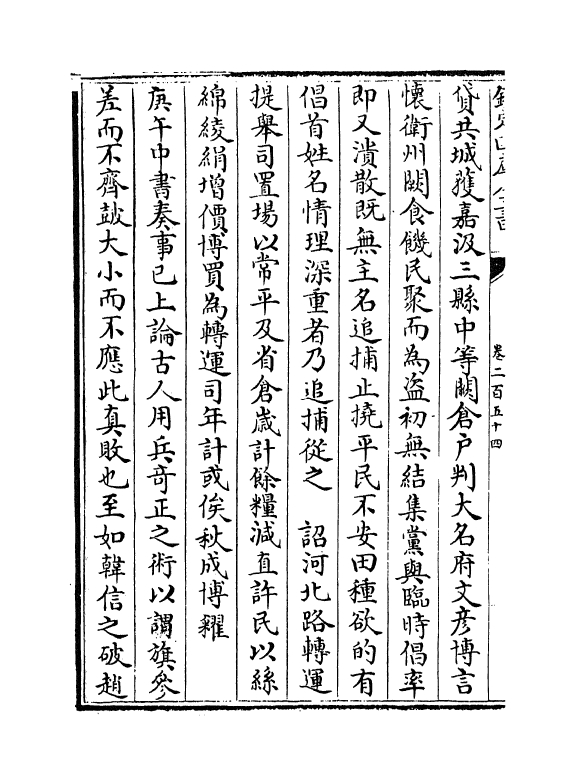 欽定四庫全書
卷二百五十四
貸共城獲嘉汲三縣中等闕倉户判大名府文彦博言
懷衛州闕食饑民聚而為盗初無結集黨與臨時倡率
即又潰散既無主名追捕止撓平民不安田種欲的有
倡首姓名情理深重者乃追捕從之　詔河北路轉運
提舉司置場以常平及省倉嵗計餘糧減直許民以絲
綿綾絹增價博買為轉運司年計或俟秋成博糴
庚午中書奏事已上論古人用兵竒正之術以謂旗參
差而不齊鼓大小而不應此真敗也至如韓信之破趙